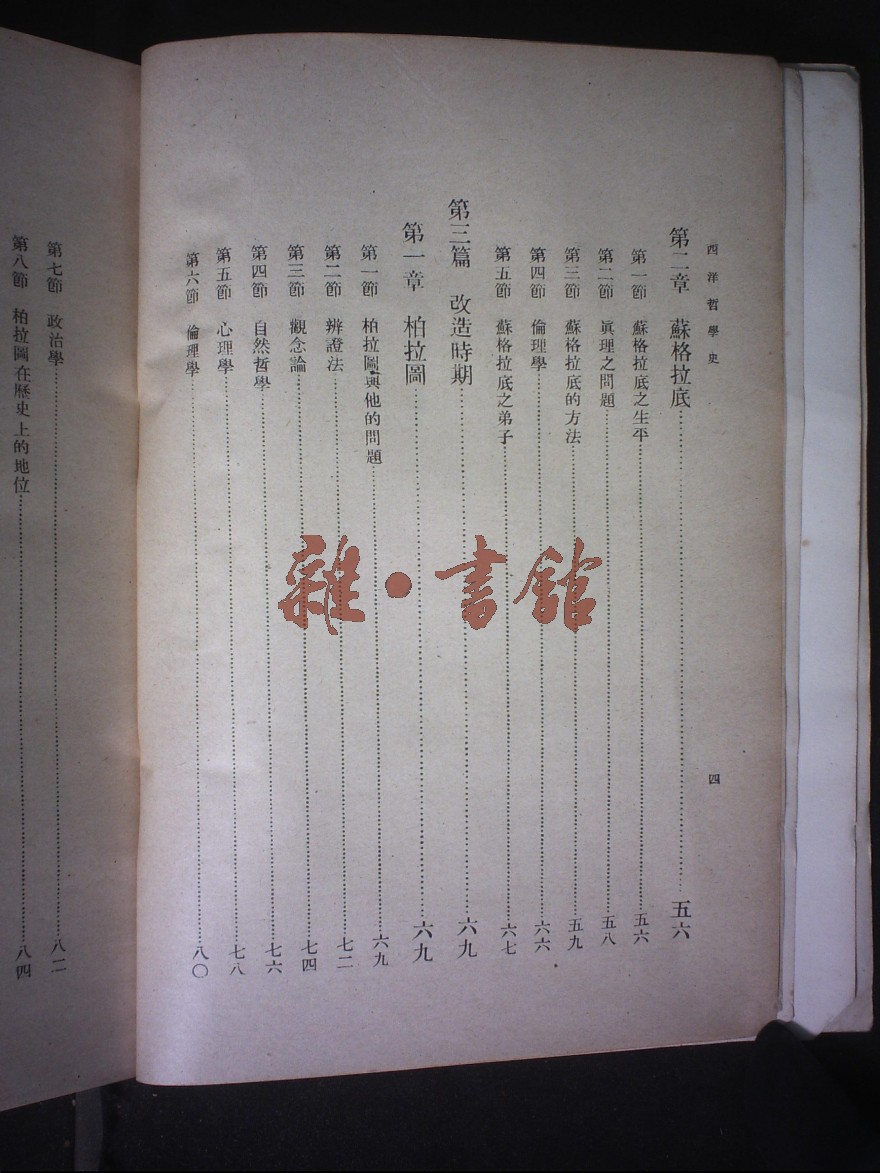 西洋哲學史
四
第二章 蘇格拉底……五六
第一節 蘇格拉底之生平……五六
第二節 眞理之問題……五八
第三節 蘇格拉底的方法……五九
第四節 倫理學……六六
第五節 蘇格拉底之弟子……六七
第三篇 改造時期……六九
第一章 柏拉圖……六九
第一節 柏拉圖與他的問題……六九
第二節 辨證法……七二
第三節 觀念論……七四
第四節 自然哲學……七六
第五節 心理學……七八
第六節 倫理學……八〇
第七節 政治學……八二
第八節 柏拉圖在歷史上的地位……八四
雜·書館